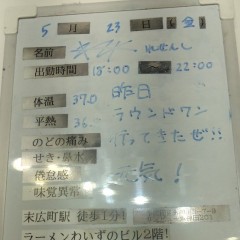 5 月 23 日 (金)
名前
出勤時間 18:00 22:00
体温 37.0 昨日
平熱 36. ラウンドワン
のどの痛み 行ってきたぜ!!
せき・鼻水
倦怠感 元気!
味覚異常
末広町駅 徒歩1分!
ラーメンわいずのビル2階!